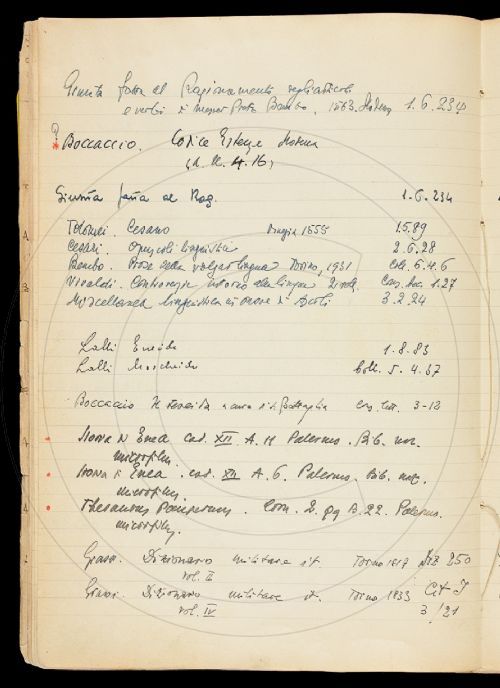 Giunta fatta al Ragionamento degli articoli
e verbi di messer Pietro Bembo, 1563, Modena 1.6.234
? Boccaccio. Codice Estense Modena
Giunta fatta al Rag. 1.6.234
Tolomei. Cesano 1555 1.5.89
Cesari. Opuscoli linguistici 2.6.28
Bembo. Prose della volgar lingua Torino, 1931 Coll. 5.4.6
Vivaldi. Controversie intorno alla lingua 2 voll. 1.27
Miscellanea linguistica in onore di Ascoli 3.2.24
Lalli Eneide 1.8.83
Lalli Moscheide Coll. 5.4.37
Boccaccio Il Teseida a cura di S. Battaglia 3-12
Storia di Enea cod. XII A. 11 Palermo. Bib. naz.
microfilm.
Storia di Enea. cod. XII A. 6. Palermo. Bib. naz.
microfilm.
Thesaurus Pauperum. Com. 2. Qq B. 22. Palermo.
microfilm.
Grassi. Dizionario militare it. Torino 1817 Diz 250
vol. II
Grassi. Dizionario militare it. Torino 1833
vol. IV 3/21